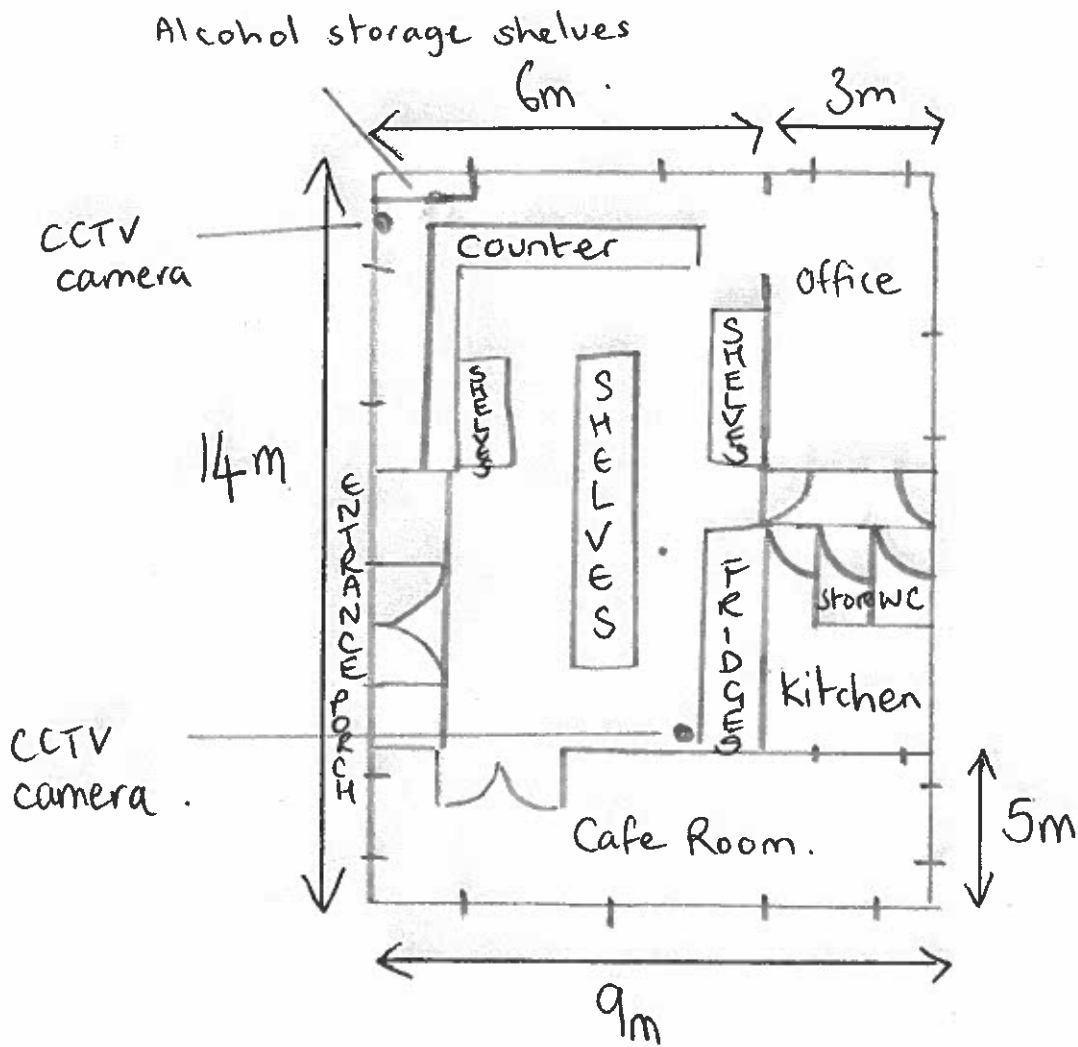 Alcohol storage shelves
6m.
3m
CCTV
camera
Counter
Office
SHELVES
SHELVES
SHELVES
14m
ENTRANCE PORCH
FRIDGES
Store WC
Kitchen
CCTV
camera.
Cafe Room.
5m
9m